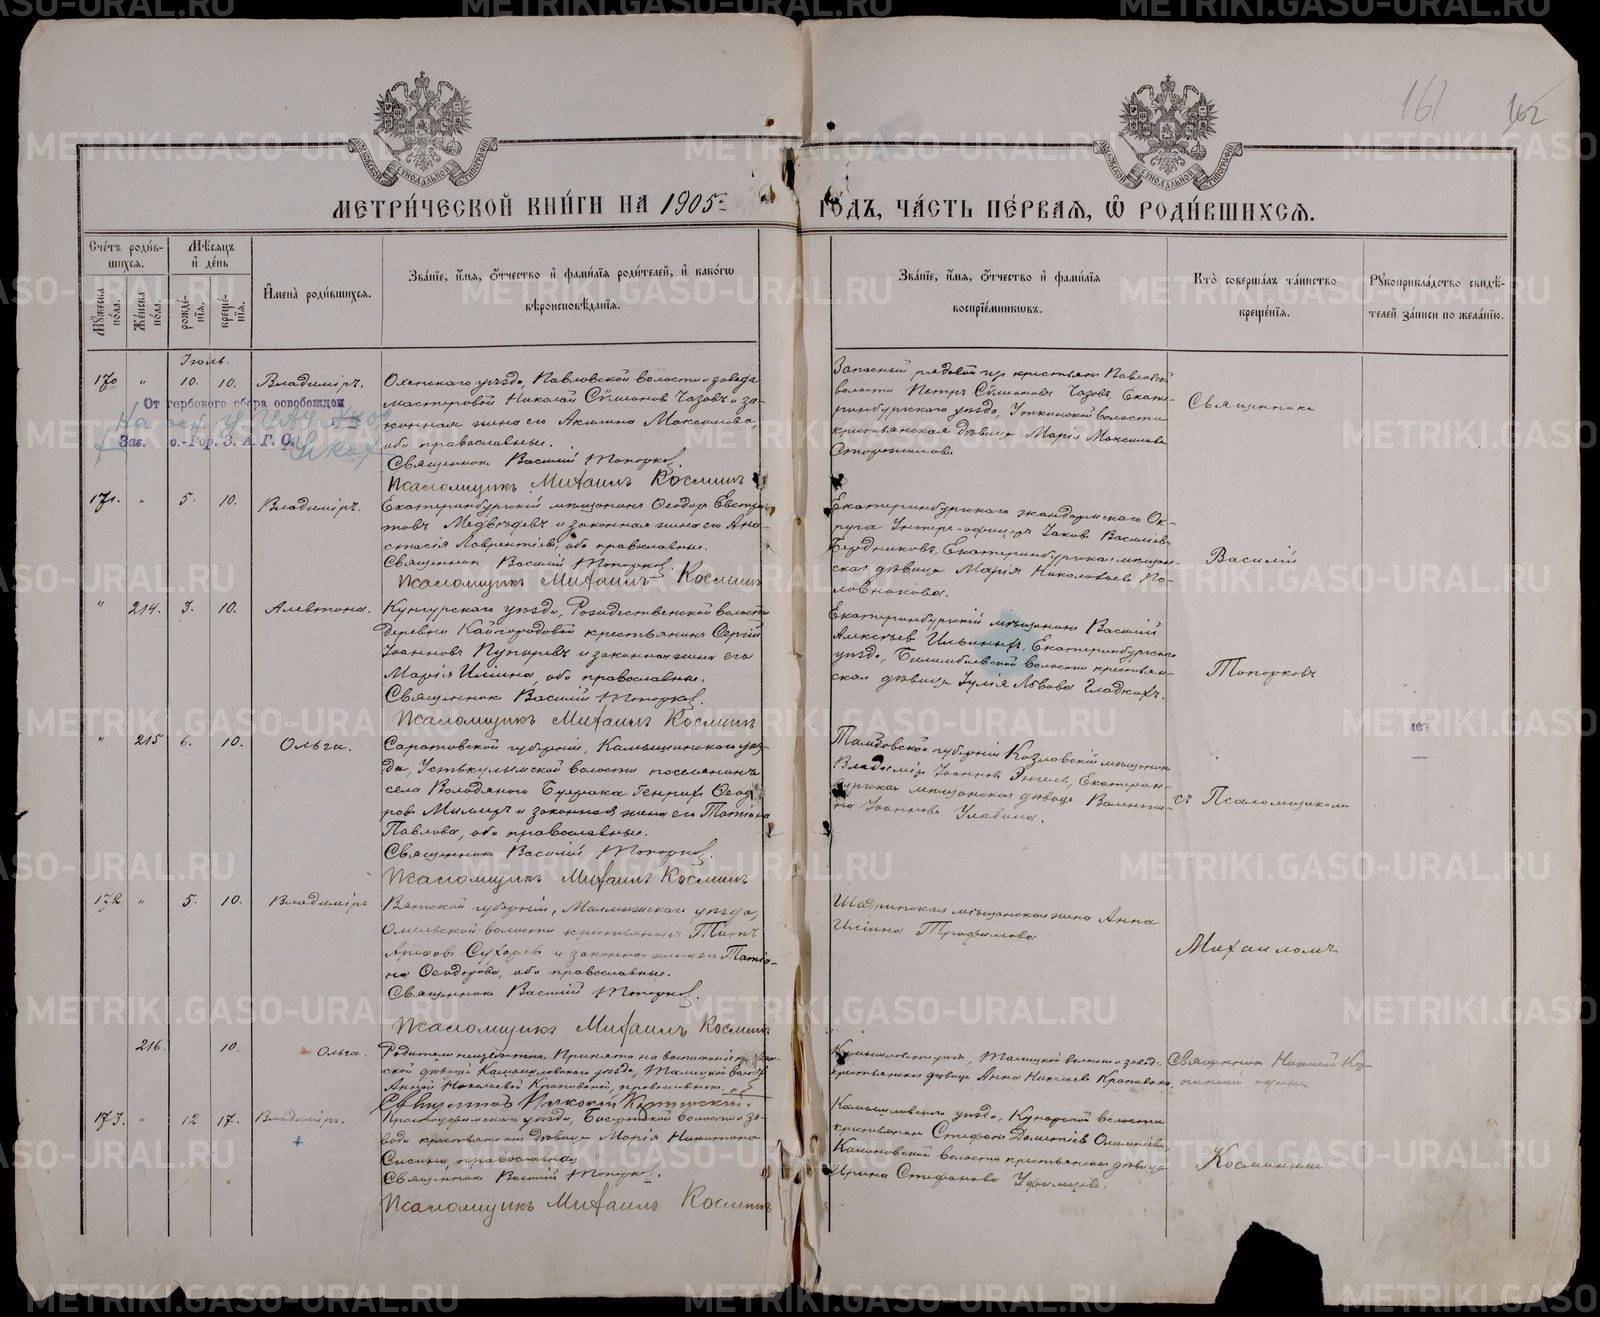 161 162
МЕТРИ́ЧЕСКОЙ КНИ́ГИ НА 1905 ГОДЪ, ЧА́СТЬ ПЕ́РВАЯ, Ѡ҆ РОДИ́ВШИХСЯ.
Сче́тъ роди́в-
шихся.
Мꙋ́жеска по́ла.
Же́нска по́ла.
Мѣ́сяцъ и҆ де́нь
рожде́-
нїя.
креще́-
нїя.
И҆мена̀ роди́вшихся.
Зва́нїе, и҆́мя, ѻ҆́тчество и҆ фами́лїя роди́телей, и҆ како́гѡ
вѣроисповѣ́данїя.
Зва́нїе, и҆́мя, ѻ҆́тчество и҆ фами́лїя
воспрїе́мникѡвъ.
Кто̀ соверша́лъ та́инство
креще́нїя.
Рꙋкоприкла́дство свидѣ́-
телей за́писи по жела́нїю.
Іюль.
170 " 10. 10. Владиміръ.
Оханскаго уѣзда, Павловской волости и завода
мастеровой Николай Сѵмеонов Чазовъ и за-
конная жена его Акилина Максимова,
оба православные.
Священник Василій Топорков.
Псаломщикъ Михаилъ Космин
Запасный рядовой из крестьян Павловской
волости Петръ Сѵмеоновъ Чазовъ, Екате-
ринбургскаго уѣзда, Уткинской волости
крестьянская дѣвица Марія Максимова
Сторожилова.
Священник
От гербового сбора освобожден
Зав. о.-Гор. З. А. Г. С.
171. " 5. 10. Владиміръ.
Екатеринбургскій мѣщанинъ Ѳеодоръ Евстра-
товъ Медвѣдевъ и законная жена его Ана-
стасія Лаврентіева, оба православные.
Священник Василій Топорков.
Псаломщикъ Михаилъ Космин
Екатеринбургскаго жандармскаго Ок-
руга Унтеръ-офицеръ Іаковъ Васильев
Бердниковъ, Екатеринбургская мѣщан-
ская дѣвица Марія Николаева По-
ловникова.
Василій
" 214. 3. 10. Алевтина.
Кунгурскаго уѣзда, Рождественской волости
деревни Кайгородовой крестьянинъ Сергій
Іоанновъ Пупыревъ и законная жена его
Марія Иліина, оба православные.
Священник Василій Топорков.
Псаломщикъ Михаилъ Космин
Екатеринбургскій мѣщанин Василій
Алексѣев Ильиныхъ, Екатеринбургскаго
уѣзда, Билимбаевской волости крестьян-
ская дѣвица Іулія Львова Гладкихъ.
Топорковъ
" 215 6. 10. Ольга.
Саратовской губерніи, Камышинскаго уѣз-
да, Устькулымской волости поселянинъ
села Водяного Буерака Генрихъ Ѳеод-
оровъ Миллеръ и законная жена его Татіана
Павлова, оба православные.
Священник Василій Топорков.
Псаломщикъ Михаилъ Космин
Тамбовской губерніи Козловскій мѣщанин
Владиміръ Іоаннов Энгель, Екатерин-
бургская мѣщанская дѣвица Валенти-
на Іоаннова Улыбина.
съ Псаломщиком
172 " 5. 10. Владиміръ
Вятской губерніи, Малмыжскаго уѣзда,
волости крестьянинъ Титъ
Сухарев и законная жена его Татіа-
на Ѳеодорова, оба православные.
Священник Василій Топорков.
Псаломщикъ Михаилъ Космин
Шадринская мѣщанская жена Анна
Иліина Трофимова
Михаиломъ
216. 10. Ольга.
Родители неизвѣстны. Принята на воспитаніе крестьян-
ской дѣвицей Камышловскаго уѣзда, Талицкой волости
Анной Николаевой Крапивиной, православною.
Священник Николай
Камышловскаго уѣзда, Талицкой волости и завода
крестьянская дѣвица Анна Николаева Крапивина
Священник Николай
один
173. " 12 17. Владиміръ.
Красноуфимскаго уѣзда, Бисертской волости и за-
вода крестьянская дѣвица Марія Никитина
Сысина, православная
Священник Василій Топорков.
Псаломщикъ Михаилъ Космин
Камышловскаго уѣзда, Кунарской волости
крестьянин Стефан Дометіев
Калиновской волости крестьянская дѣвица
Ирина Стефанова Уфимцева.
Косминым